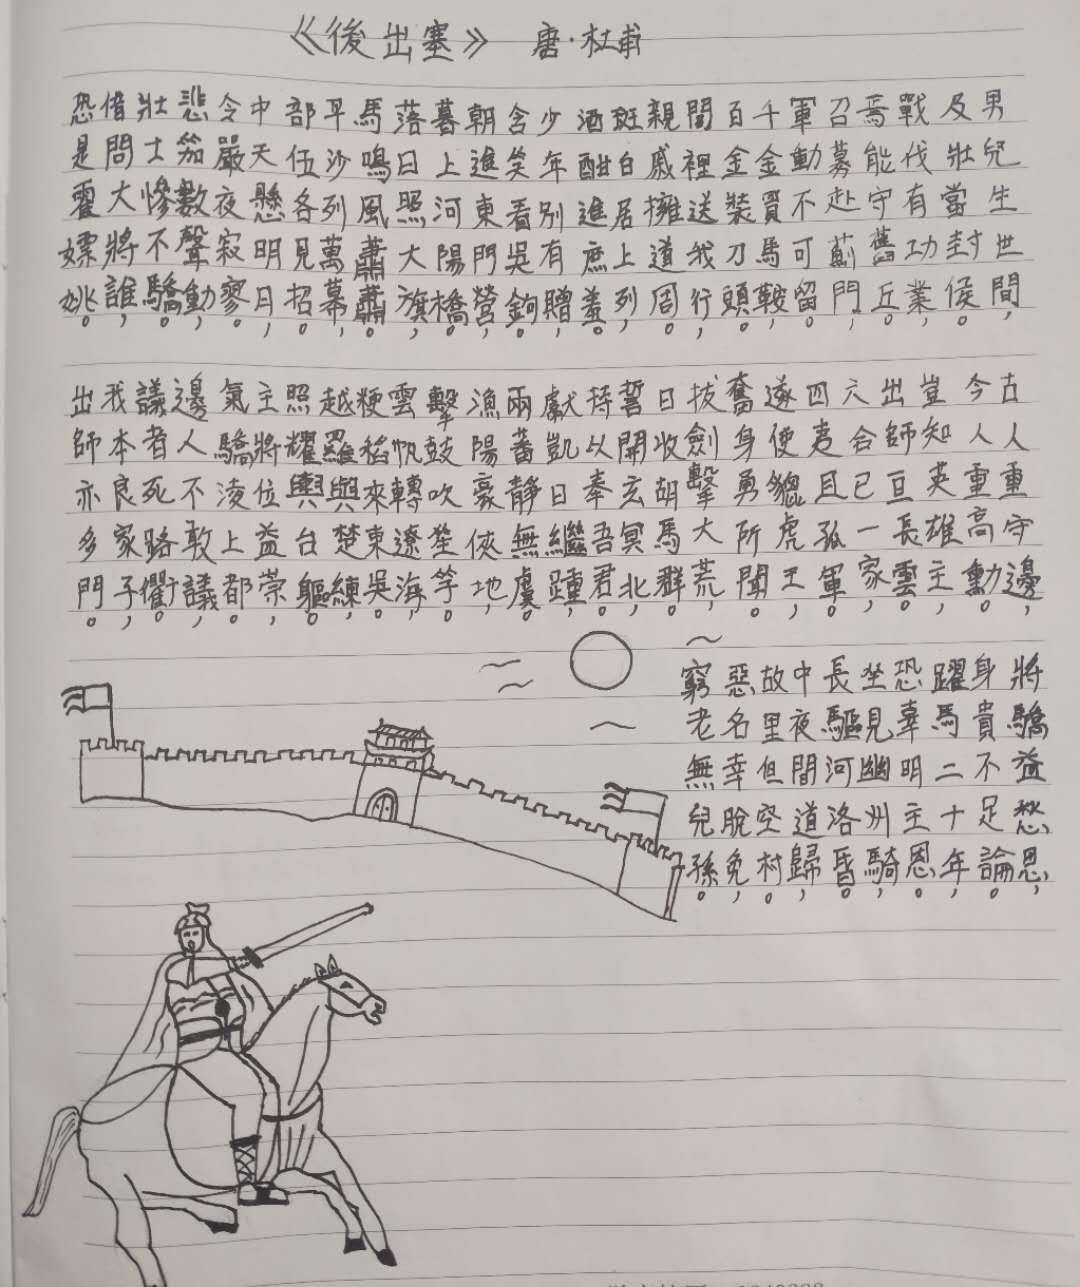 《後出塞》 唐·杜甫
男兒生世間，
及壯當封侯。
戰伐有功業，
焉能守舊丘。
召募赴薊門，
軍動不可留。
千金買馬鞍，
百金裝刀頭。
閭裡送我行，
親戚擁道周。
斑白居上列，
酒酣進庶羞。
少年別有贈，
含笑看吳鉤。
朝進東門營，
暮上河陽橋。
落日照大旗，
馬鳴風蕭蕭。
平沙列萬幕，
部伍各見招。
中天懸明日，
令嚴夜寂寥。
悲笳數聲動，
壯士慘不驕。
借問大將誰，
恐是霍嫖姚。
古人重守邊，
今人重高勳。
豈知英雄主，
出師亘長雲。
六合已一家，
四夷且孤軍。
遂使貔虎王，
奮身勇所聞。
拔劍擊大荒，
日收胡馬群。
誓開玄冥北，
持以奉吾君。
獻凱日繼踵，
兩蕃靜無虞。
漁陽豪俠地，
擊鼓吹笙竽。
雲帆轉遼海，
粳稻來東吳。
越羅與楚練，
照耀輿台軀。
主將位益崇，
氣驕淩上都。
邊人不敢議，
議者死路衢。
我本良家子，
出師亦多門。
將驕益愁思，
身貴不足論。
躍馬二十年，
恐辜明主恩。
坐見幽州騎，
長驅河洛昏。
中夜間道歸，
故里但空村。
惡名幸脫免，
窮老無兒孫。